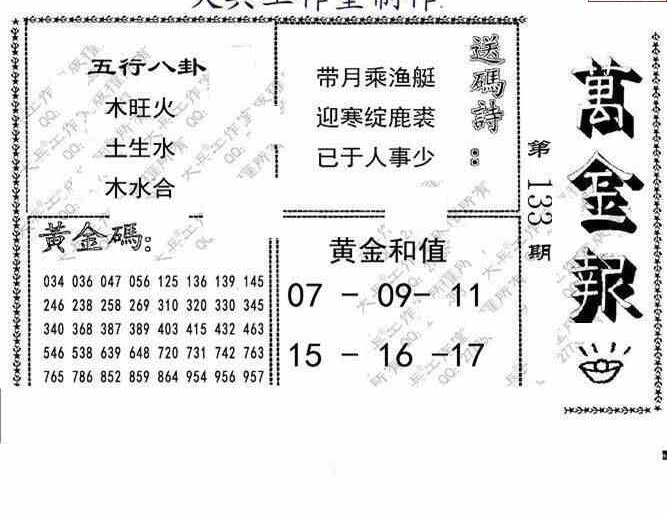 大兵工作室制作
五行八卦
木旺火
土生水
木水合
送碼詩：
带月乘渔艇
迎寒绽鹿裘
已于人事少
黃金碼：
034 036 047 056 125 136 139 145
246 238 258 269 310 320 330 345
340 368 387 389 403 415 432 463
546 538 639 648 720 731 742 763
765 786 852 859 864 954 956 957
黄金和值
07 - 09- 11
15 - 16 -17
萬金報
第133期